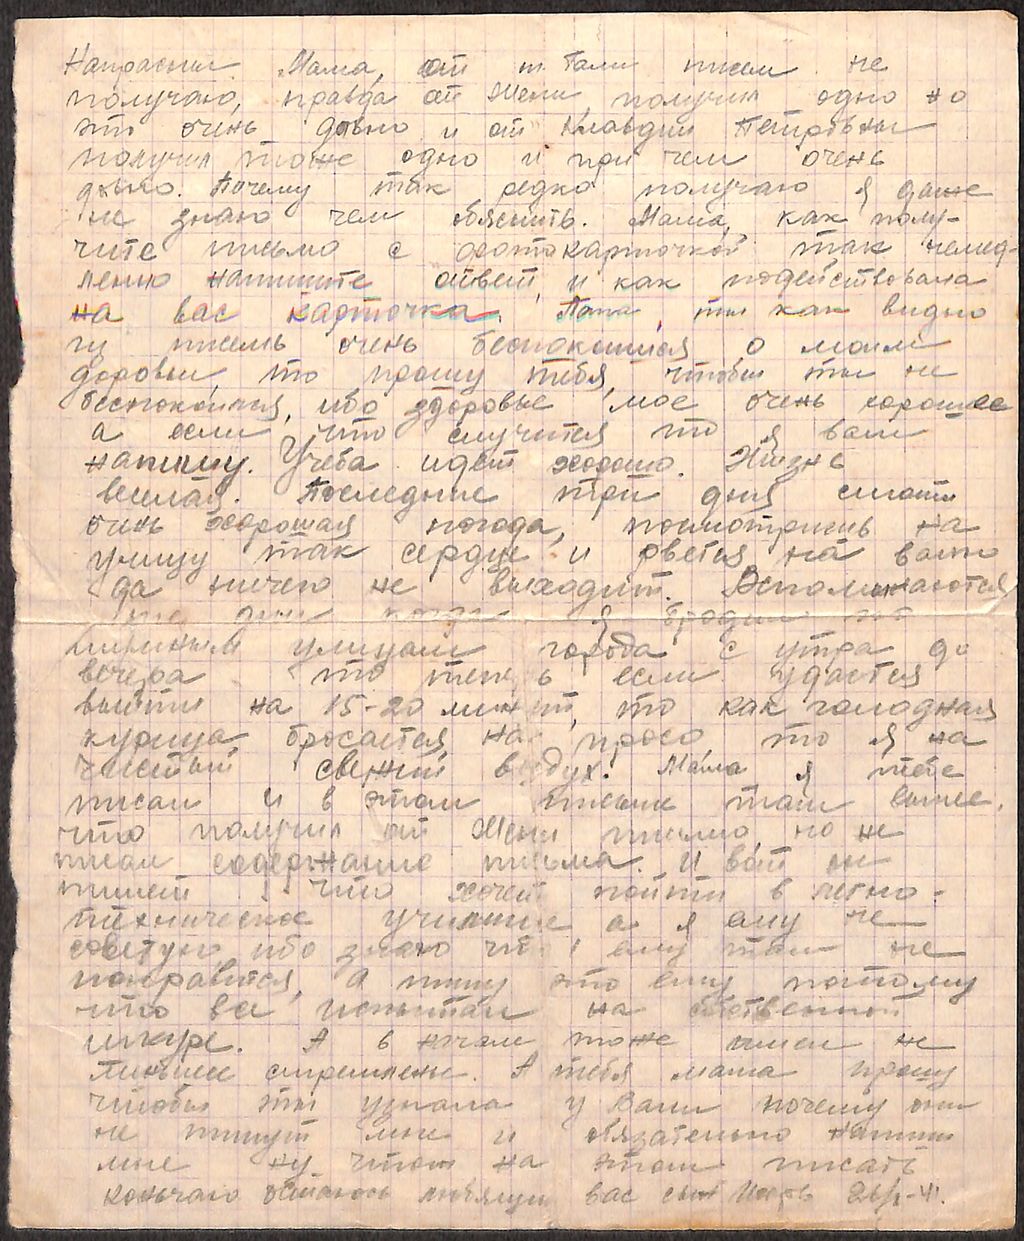 Напрасны. Мама, от т. Тани писем не
получаю, правда от Жени получил одно но
это очень давно и от Клавдии Петровны
получил тоже одно и при чем очень
давно. Почему так редко получаю я даже
не знаю чем обяснить. Мама, как полу-
чите письмо с фотокарточкой так немед-
ленно напишите ответ, и как подействовала
на вас карточка. Папа, ты как видно
из писем очень беспокоишся о моем
здоровьи, то прошу тебя, чтобы ты не
беспокоился, ибо здоровье мое очень хорошее
а если что случится то я вам
напишу. Учеба идет хорошо. Жизнь
веселая. Последние три дня стоит
очень хорошая погода, посмотришь на
улицу так сердце и рвется на волю
да ничего не выходит. Вспоминаются
те дни когда я бродил по
улицам города с утра до
вечера то теперь если удастся
выйти на 15-20 минут, то как голодная
курица бросается на просо, то я на
чистый свежий воздух. Мама я тебе
писал и в этом письме там выше,
что получил от Жени письмо, но не
писал содержание письма. И вот он
пишет, что хочет пойти в летно-
техническое училище а я ему не
советую, ибо знаю что ему там не
понравится, а пишу это ему потому
что все испытал на собственной
шкуре. А в начале тоже имел не
меньшее стремление. А тебя мама прошу
чтобы ты узнала у Вали почему они
не пишут мне и обязательно напиши
мне ну чтож на этом писать
кончаю остаюсь любящий вас сын Игорь 26/I-41.